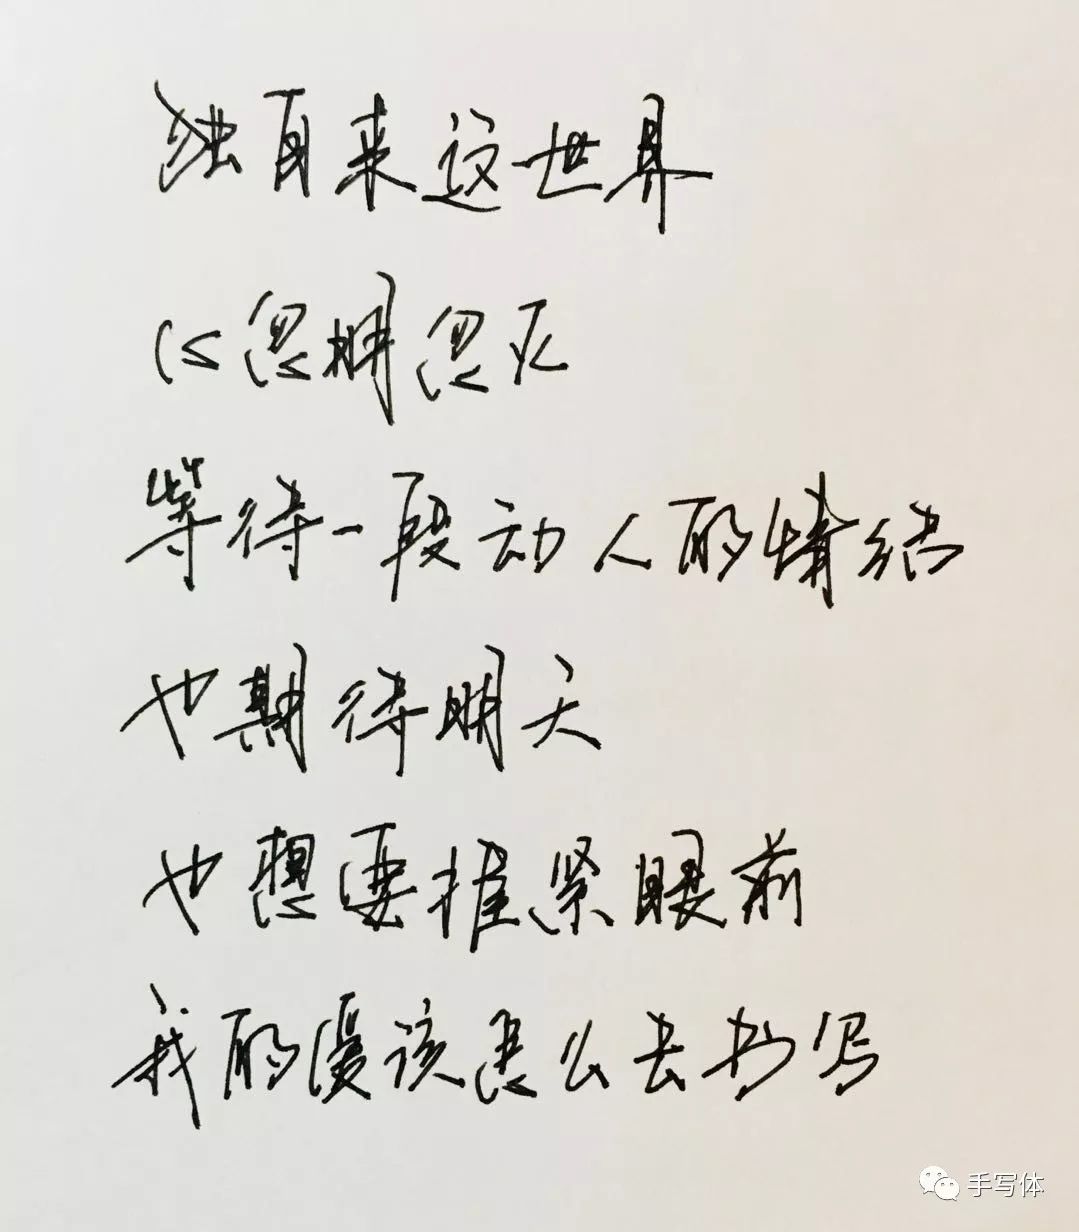 独自来这世界
心忽明忽灭
等待一段动人的情结
也期待明天
也想要握紧眼前
我的该怎么去书写
手写体